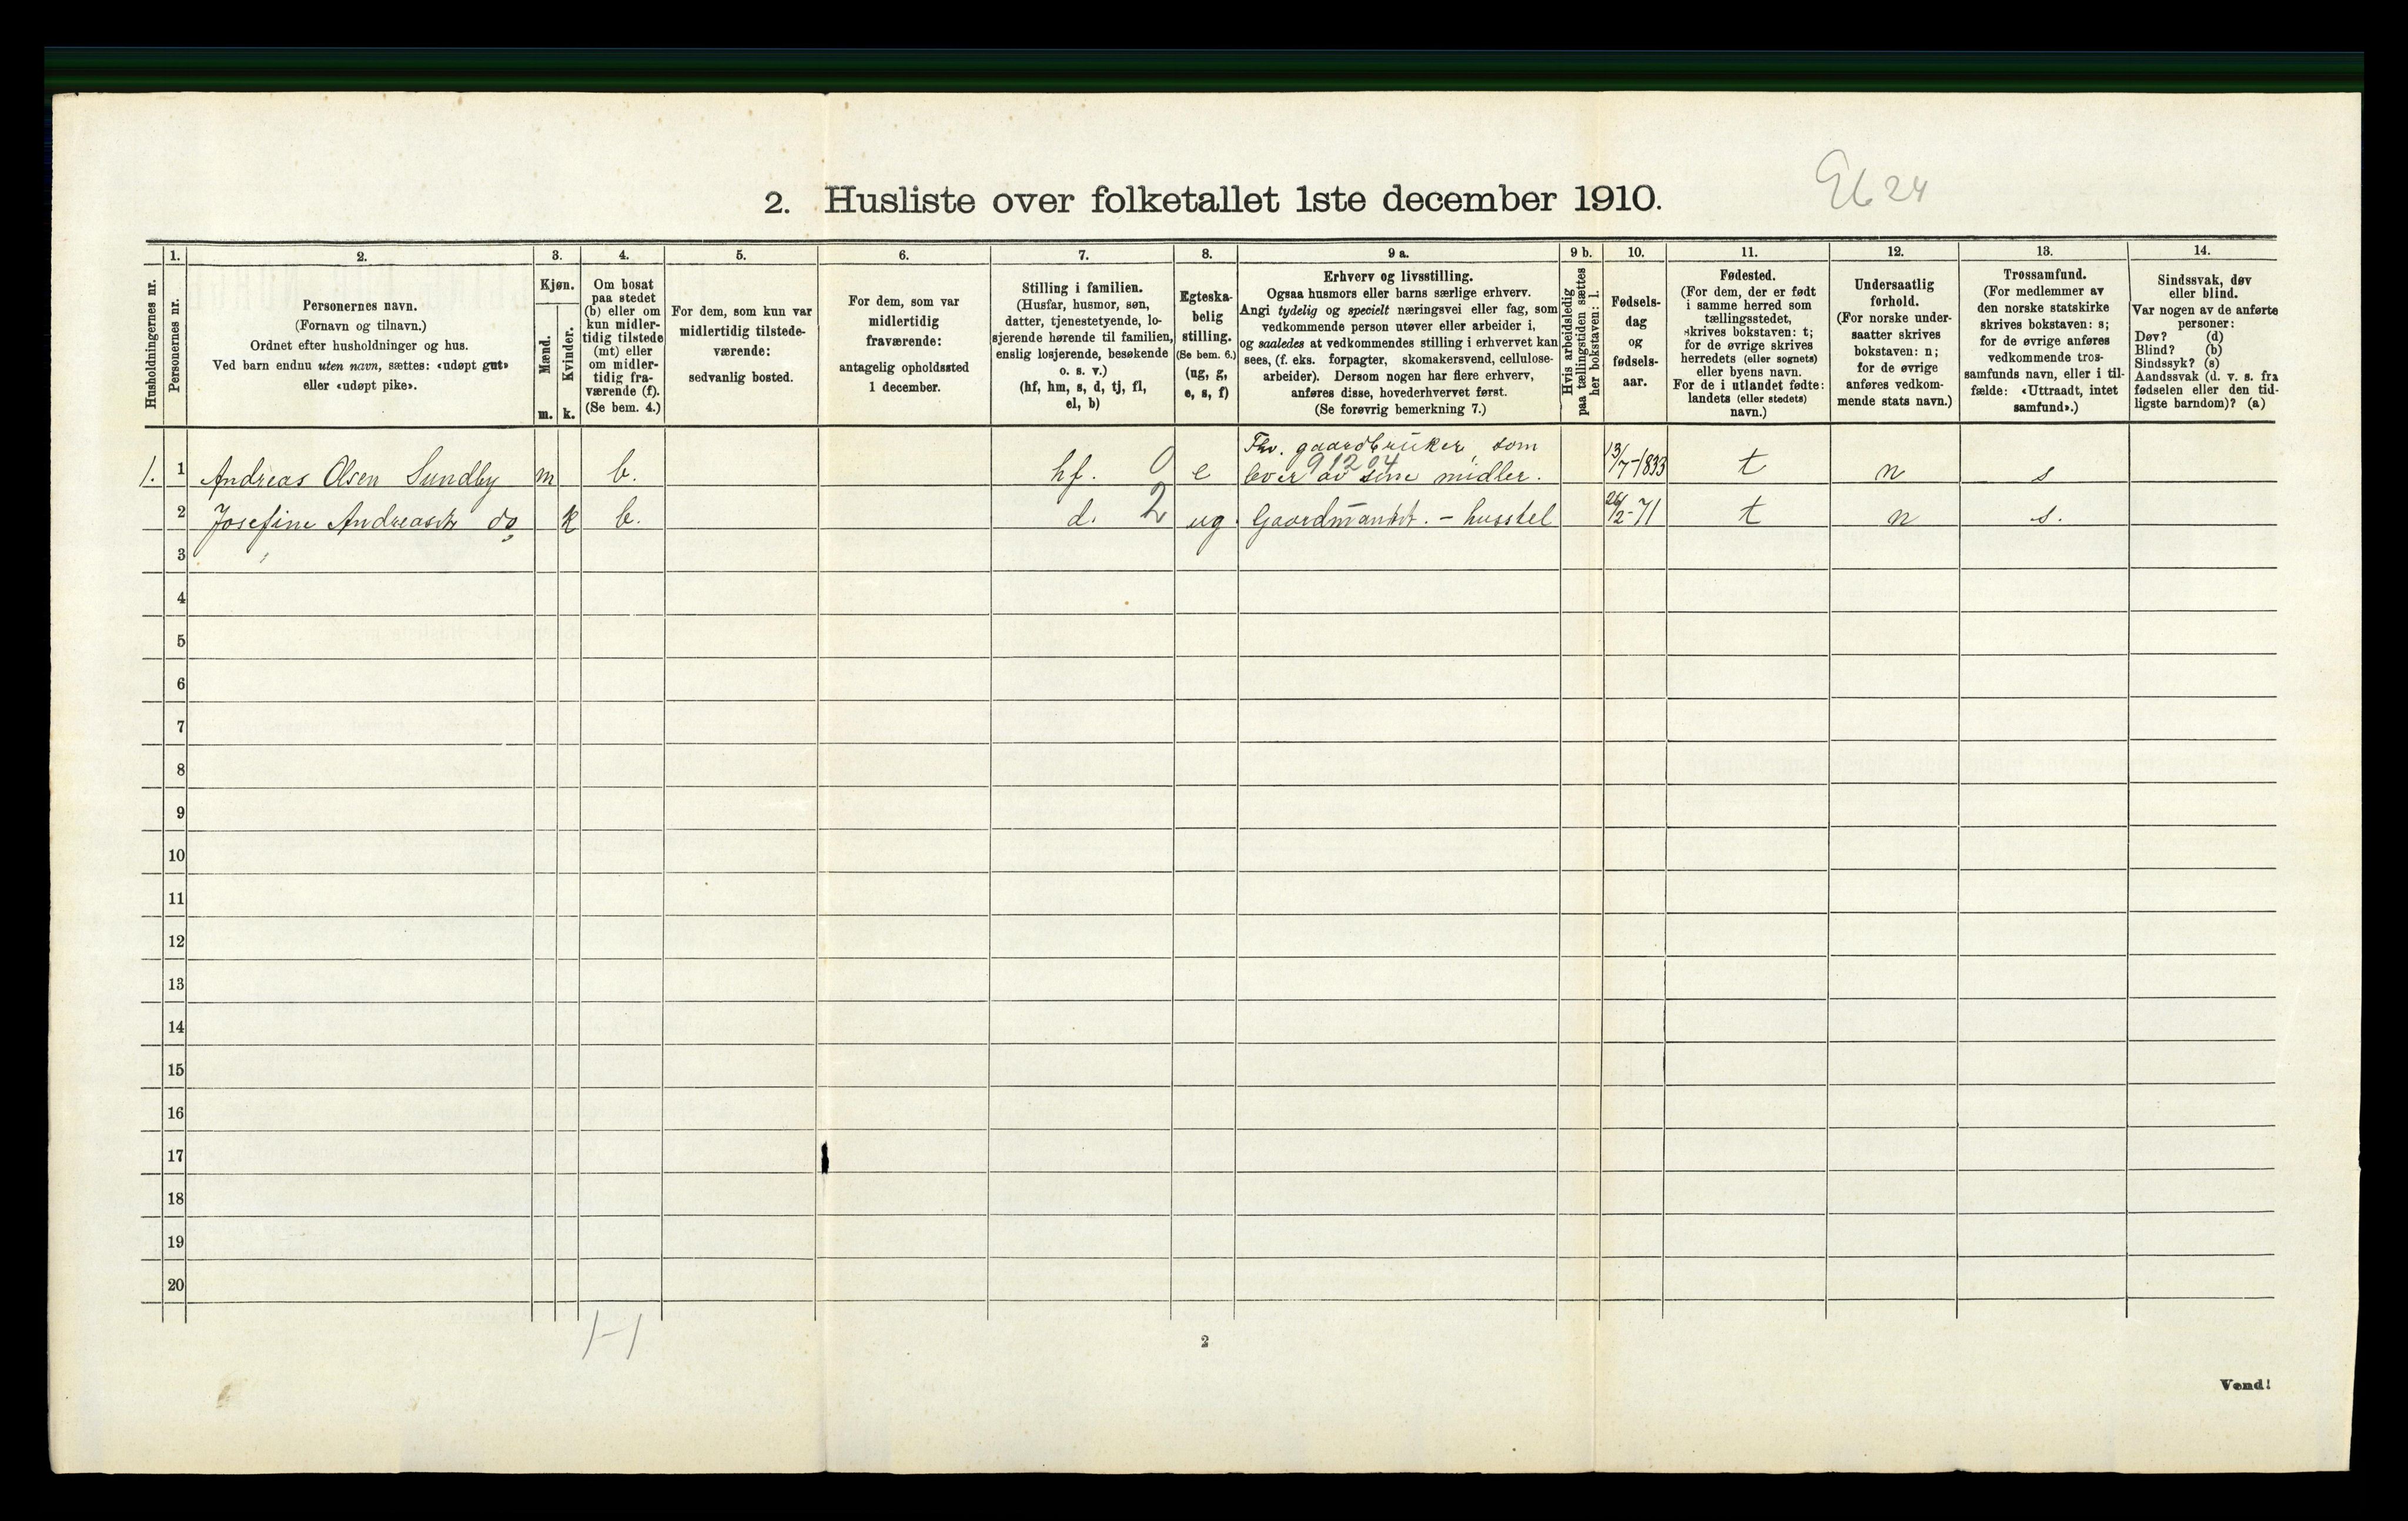 2. Husliste over folketallet 1ste december 1910.
24
Husholdningernes nr.
1.
Personernes nr.
2.
Personernes navn.
(Fornavn og tilnavn.)
Ordnet efter husholdninger og hus.
Ved barn endnu uten navn, sættes: «udøpt gut»
eller «udøpt pike».
3.
Kjøn.
Mænd.
m.
Kvinder.
k.
4.
Om bosat
paa stedet
(b) eller om
kun midler-
tidig tilstede
(mt) eller
om midler-
tidig fra-
værende (f).
(Se bem. 4.)
5.
For dem, som kun var
midlertidig tilstede-
værende:
sedvanlig bosted.
6.
For dem, som var
midlertidig
fraværende:
antagelig opholdssted
1 december.
7.
Stilling i familien.
(Husfar, husmor, søn,
datter, tjenestetyende, lo-
sjerende hørende til familien,
enslig losjerende, besøkende
o. s. v.)
(hf, hm, s, d, tj, fl,
el, b)
8.
Egteska-
belig
stilling.
(Se bem. 6.)
(ug, g,
e, s, f)
9 a.
Erhverv og livsstilling.
Ogsaa husmors eller barns særlige erhverv.
Angi tydelig og specielt næringsvei eller fag, som
vedkommende person utøver eller arbeider i,
og saaledes at vedkommendes stilling i erhvervet kan
sees, (f. eks. forpagter, skomakersvend, cellulose-
arbeider). Dersom nogen har flere erhverv,
anføres disse, hovederhvervet først.
(Se forøvrig bemerkning 7.)
9 b.
Hvis arbeidsledig
paa tællingstiden sættes
her bokstaven: l.
10.
Fødsels-
dag
og
fødsels-
aar.
11.
Fødested.
(For dem, der er født
i samme herred som
tællingsstedet,
skrives bokstaven: t;
for de øvrige skrives
herredets (eller sognets)
eller byens navn.
For de i utlandet fødte:
landets (eller stedets)
navn.)
12.
Undersaatlig
forhold.
(For norske under-
saatter skrives
bokstaven: n;
for de øvrige
anføres vedkom-
mende stats navn.)
13.
Trossamfund.
(For medlemmer av
den norske statskirke
skrives bokstaven: s;
for de øvrige anføres
vedkommende tros-
samfunds navn, eller i til-
fælde: «Uttraadt, intet
samfund».)
14.
Sindssvak, døv
eller blind.
Var nogen av de anførte
personer:
Døv? (d)
Blind? (b)
Sindssyk? (s)
Aandssvak (d. v. s. fra
fødselen eller den tid-
ligste barndom)? (a)
Fhv. gaardbruker, som
91204
1. 1 Andreas Olsen Sundby m b. hf. 0 e lever av sine midler. 13/7-1833 t n s
2 Josefine Andreasdtr do k b. d. 2 ug. - husstel 26/2-71 t n s.
3
4
5
6
7
8
9
10
11
12
13
14
15
16
17
18
19
20
1-1
2
Vend!